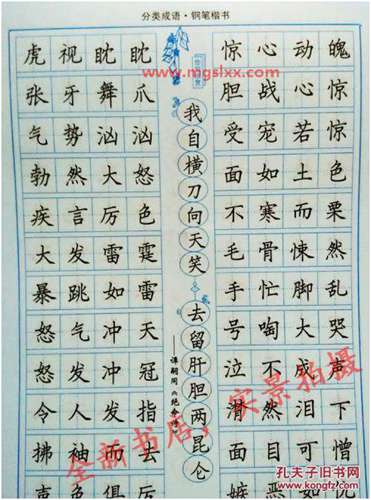 分类成语·钢笔楷书
www.mgslxx.com
虎视眈眈
张牙舞爪
气势汹汹
勃然大怒
疾言厉色
大发雷霆
暴跳如雷
怒气冲天
怒发冲冠
令人发指
拂袖而去
声色俱厉
我自横刀向天笑
去留肝胆两昆仑
——谭嗣同《绝命诗》
惊心动魄
胆战心惊
受宠若惊
面如土色
不寒而栗
毛骨悚然
手忙脚乱
号啕大哭
泣不成声
潸然泪下
面目可憎
全新书店,实景拍摄
孔夫子旧书网